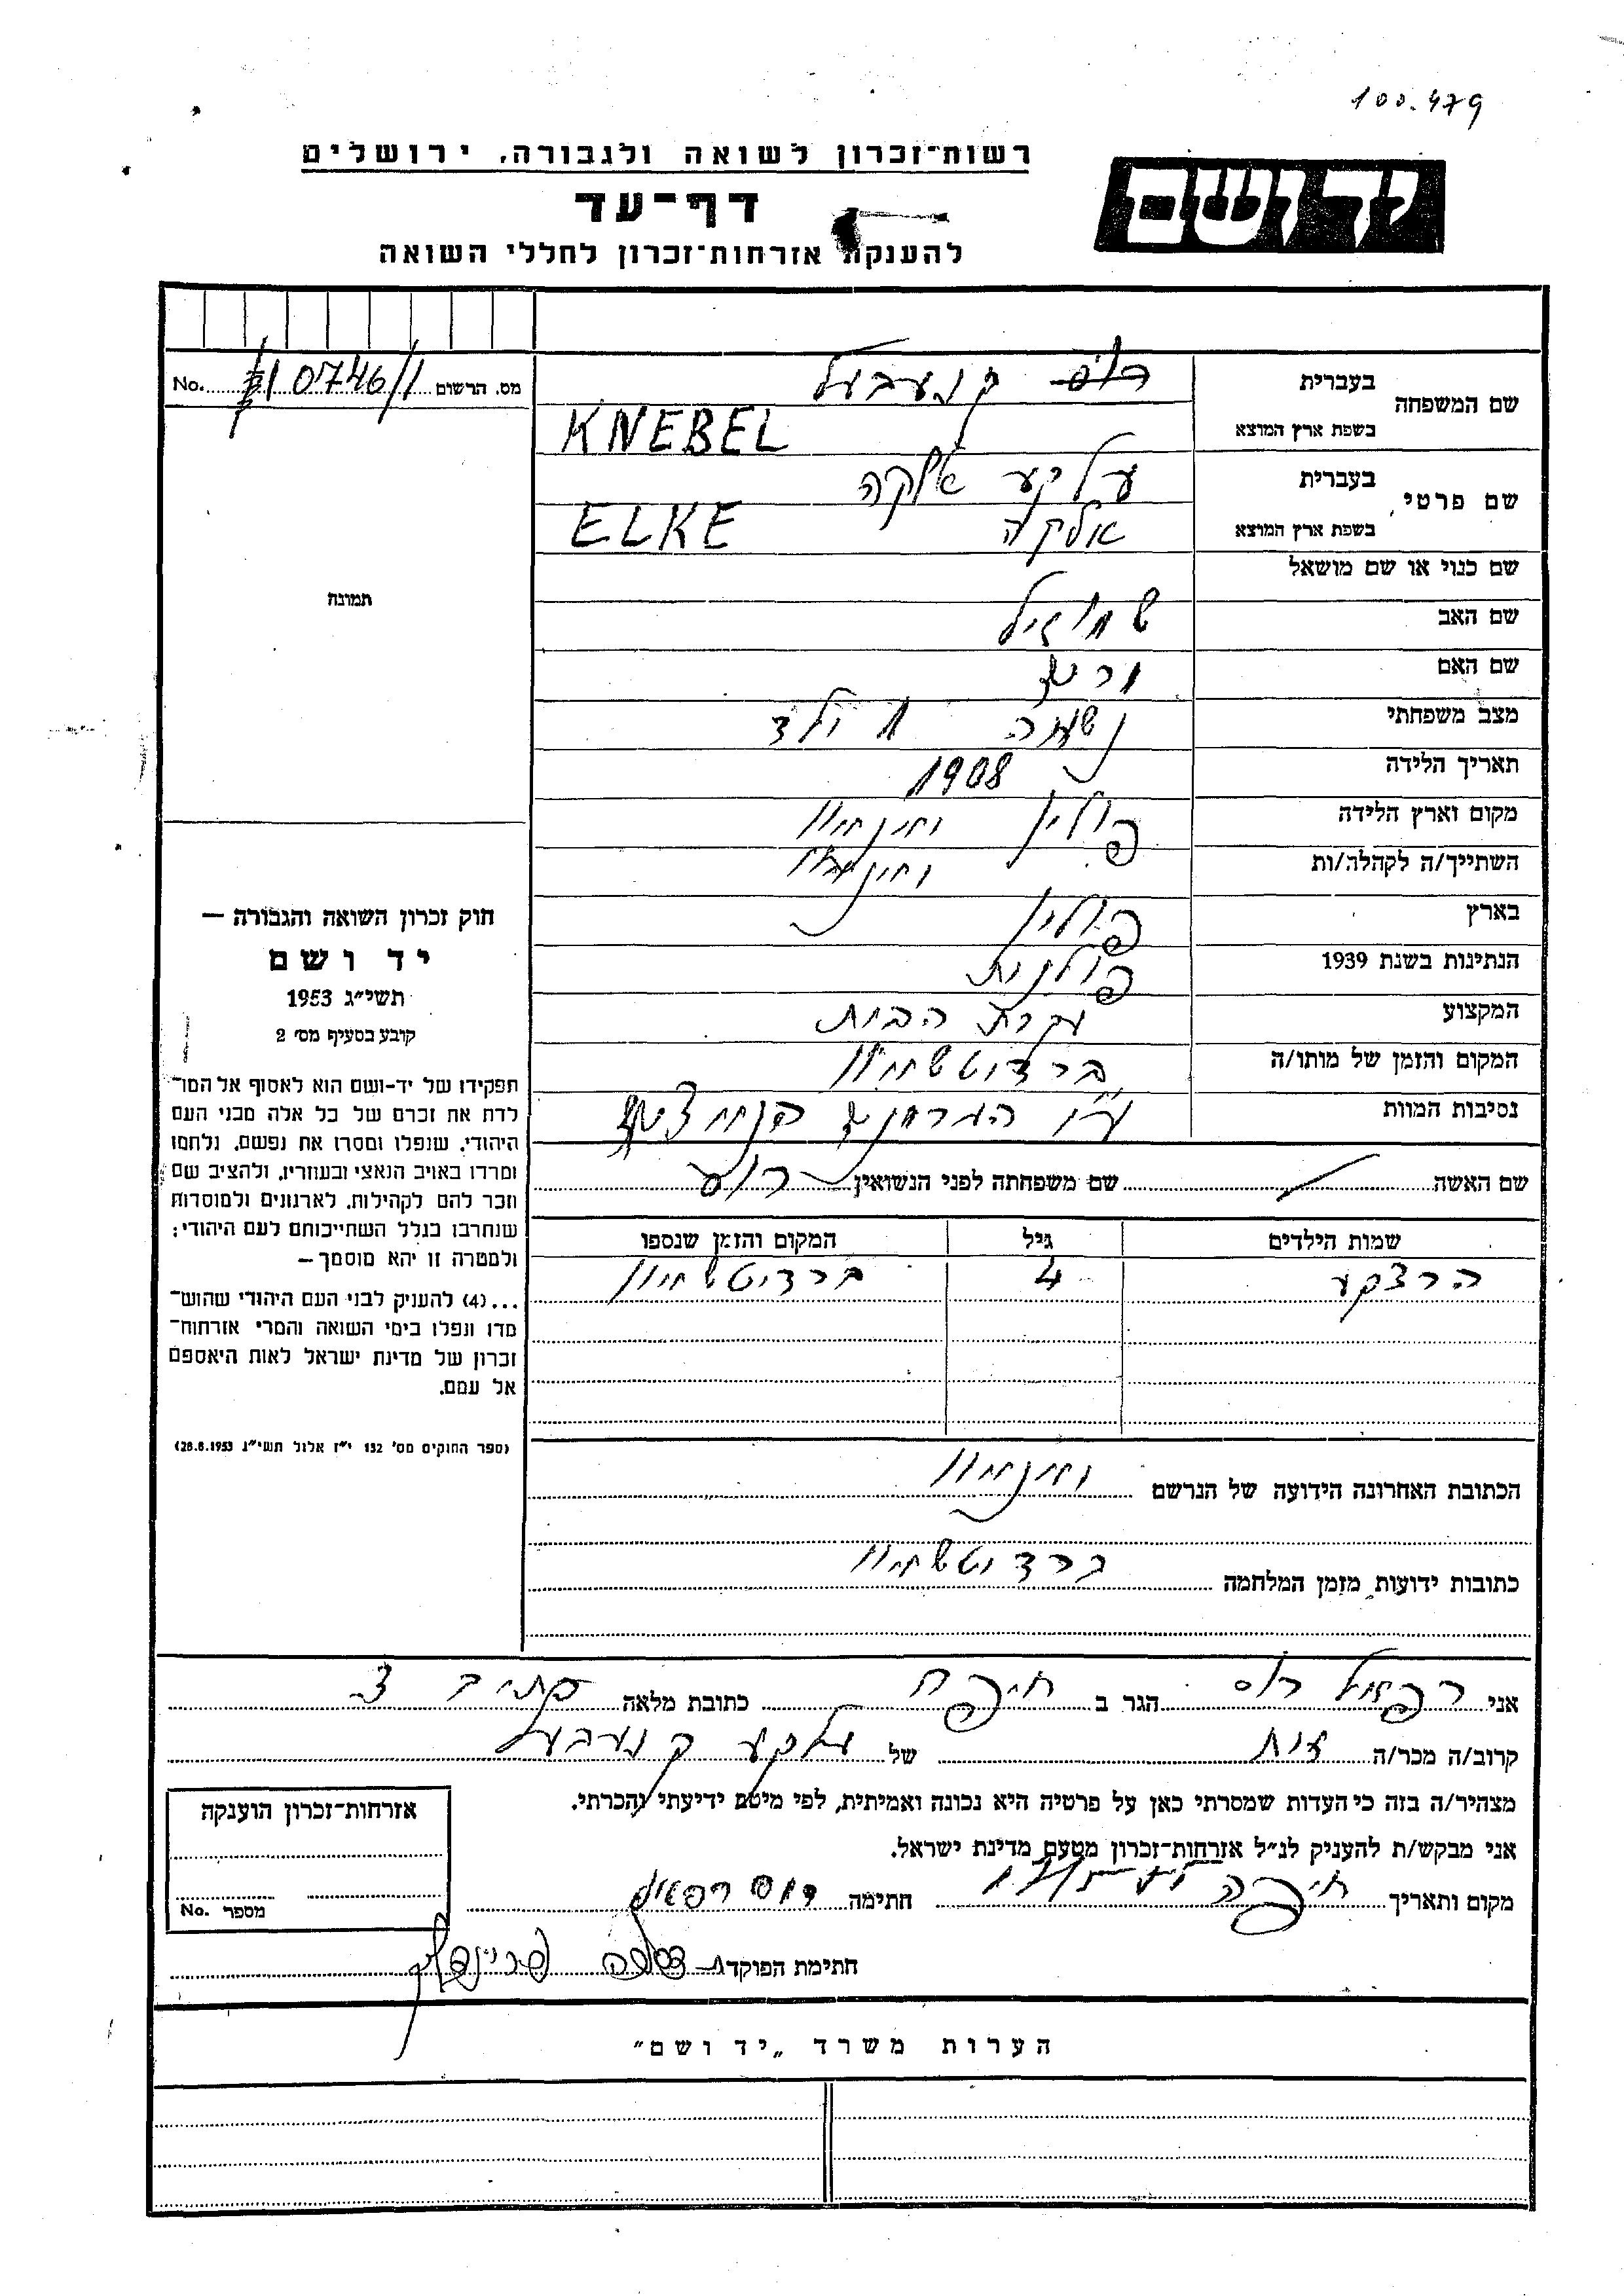 100.479
רשות־זכרון לשואה ולגבורה, ירושלים
יד ושם
דף־עד
להענקת אזרחות־זכרון לחללי השואה
מס. הרשום 10746/1 No.
שם המשפחה
בעברית רוס קנעבעל
בשפת ארץ המוצא KNEBEL
שם פרטי
בעברית עלקע אלקה
בשפת ארץ המוצא אלקה ELKE
שם כנוי או שם מושאל
שם האב שמואל
שם האם
מצב משפחתי נשואה 1 ילד
תאריך הלידה 1908
מקום וארץ הלידה פולין
השתייך/ה לקהלה/ות
בארץ פולין
הנתינות בשנת 1939 פולנית
המקצוע עקרת הבית
המקום והזמן של מותו/ה
נסיבות המוות ע״י הגרמנים הנאצים
שם האשה שם משפחתה לפני הנשואין
שמות הילדים גיל המקום והזמן שנספו
הרצקע 4
הכתובת האחרונה הידועה של הנרשם
כתובות ידועות מזמן המלחמה
תמונה
חוק זכרון השואה והגבורה —
יד ושם
תשי״ג 1953
קובע בסעיף מס׳ 2
תפקידו של יד-ושם הוא לאסוף אל המו־
לדת את זכרם של כל אלה מבני העם
היהודי, שנפלו ומסרו את נפשם, נלחמו
ומרדו באויב הנאצי ובעוזריו, ולהציב שם
וזכר להם לקהילות, לארגונים ולמוסדות
שנחרבו בגלל השתייכותם לעם היהודי;
ולמטרה זו יהא מוסמך—
...(4) להעניק לבני העם היהודי שהוש־
מדו ונפלו בימי השואה והמרי אזרחות־
זכרון של מדינת ישראל לאות היאספם
אל עמם.
(ספר החוקים מס׳ 132 י״ז אלול תשי״ג 28.8.1953)
אני רפאל רוס הגר ב חיפה כתובת מלאה
קרוב/ה מכר/ה אח של עלקע קנעבעל
מצהיר/ה בזה כי העדות שמסרתי כאן על פרטיה היא נכונה ואמיתית, לפי מיטב ידיעתי והכרתי.
אני מבקש/ת להעניק לנ״ל אזרחות־זכרון מטעם מדינת ישראל.
מקום ותאריך חיפה חתימה רוס רפאל
חתימת הפוקד
אזרחות־זכרון הוענקה
מספר No.
הערות משרד „יד ושם״